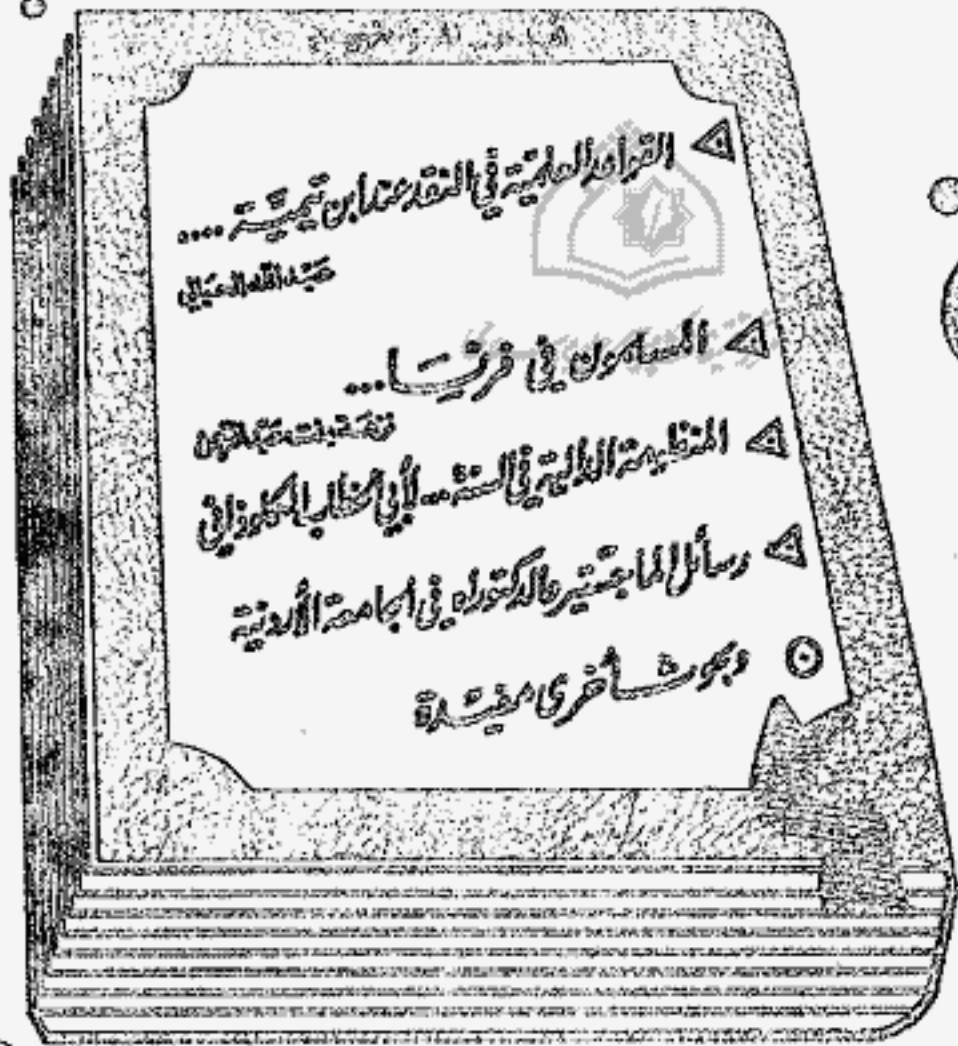 القواعد العلمية في النقد عند ابن تيمية ....
عبد الله
المسلمون في فرنسا ...
المنظومة الدالية في السنة ... لأبي الخطاب الكلوذاني
رسائل الماجستير والدكتوراه في الجامعة الأردنية
وبحوث أخرى مفيدة